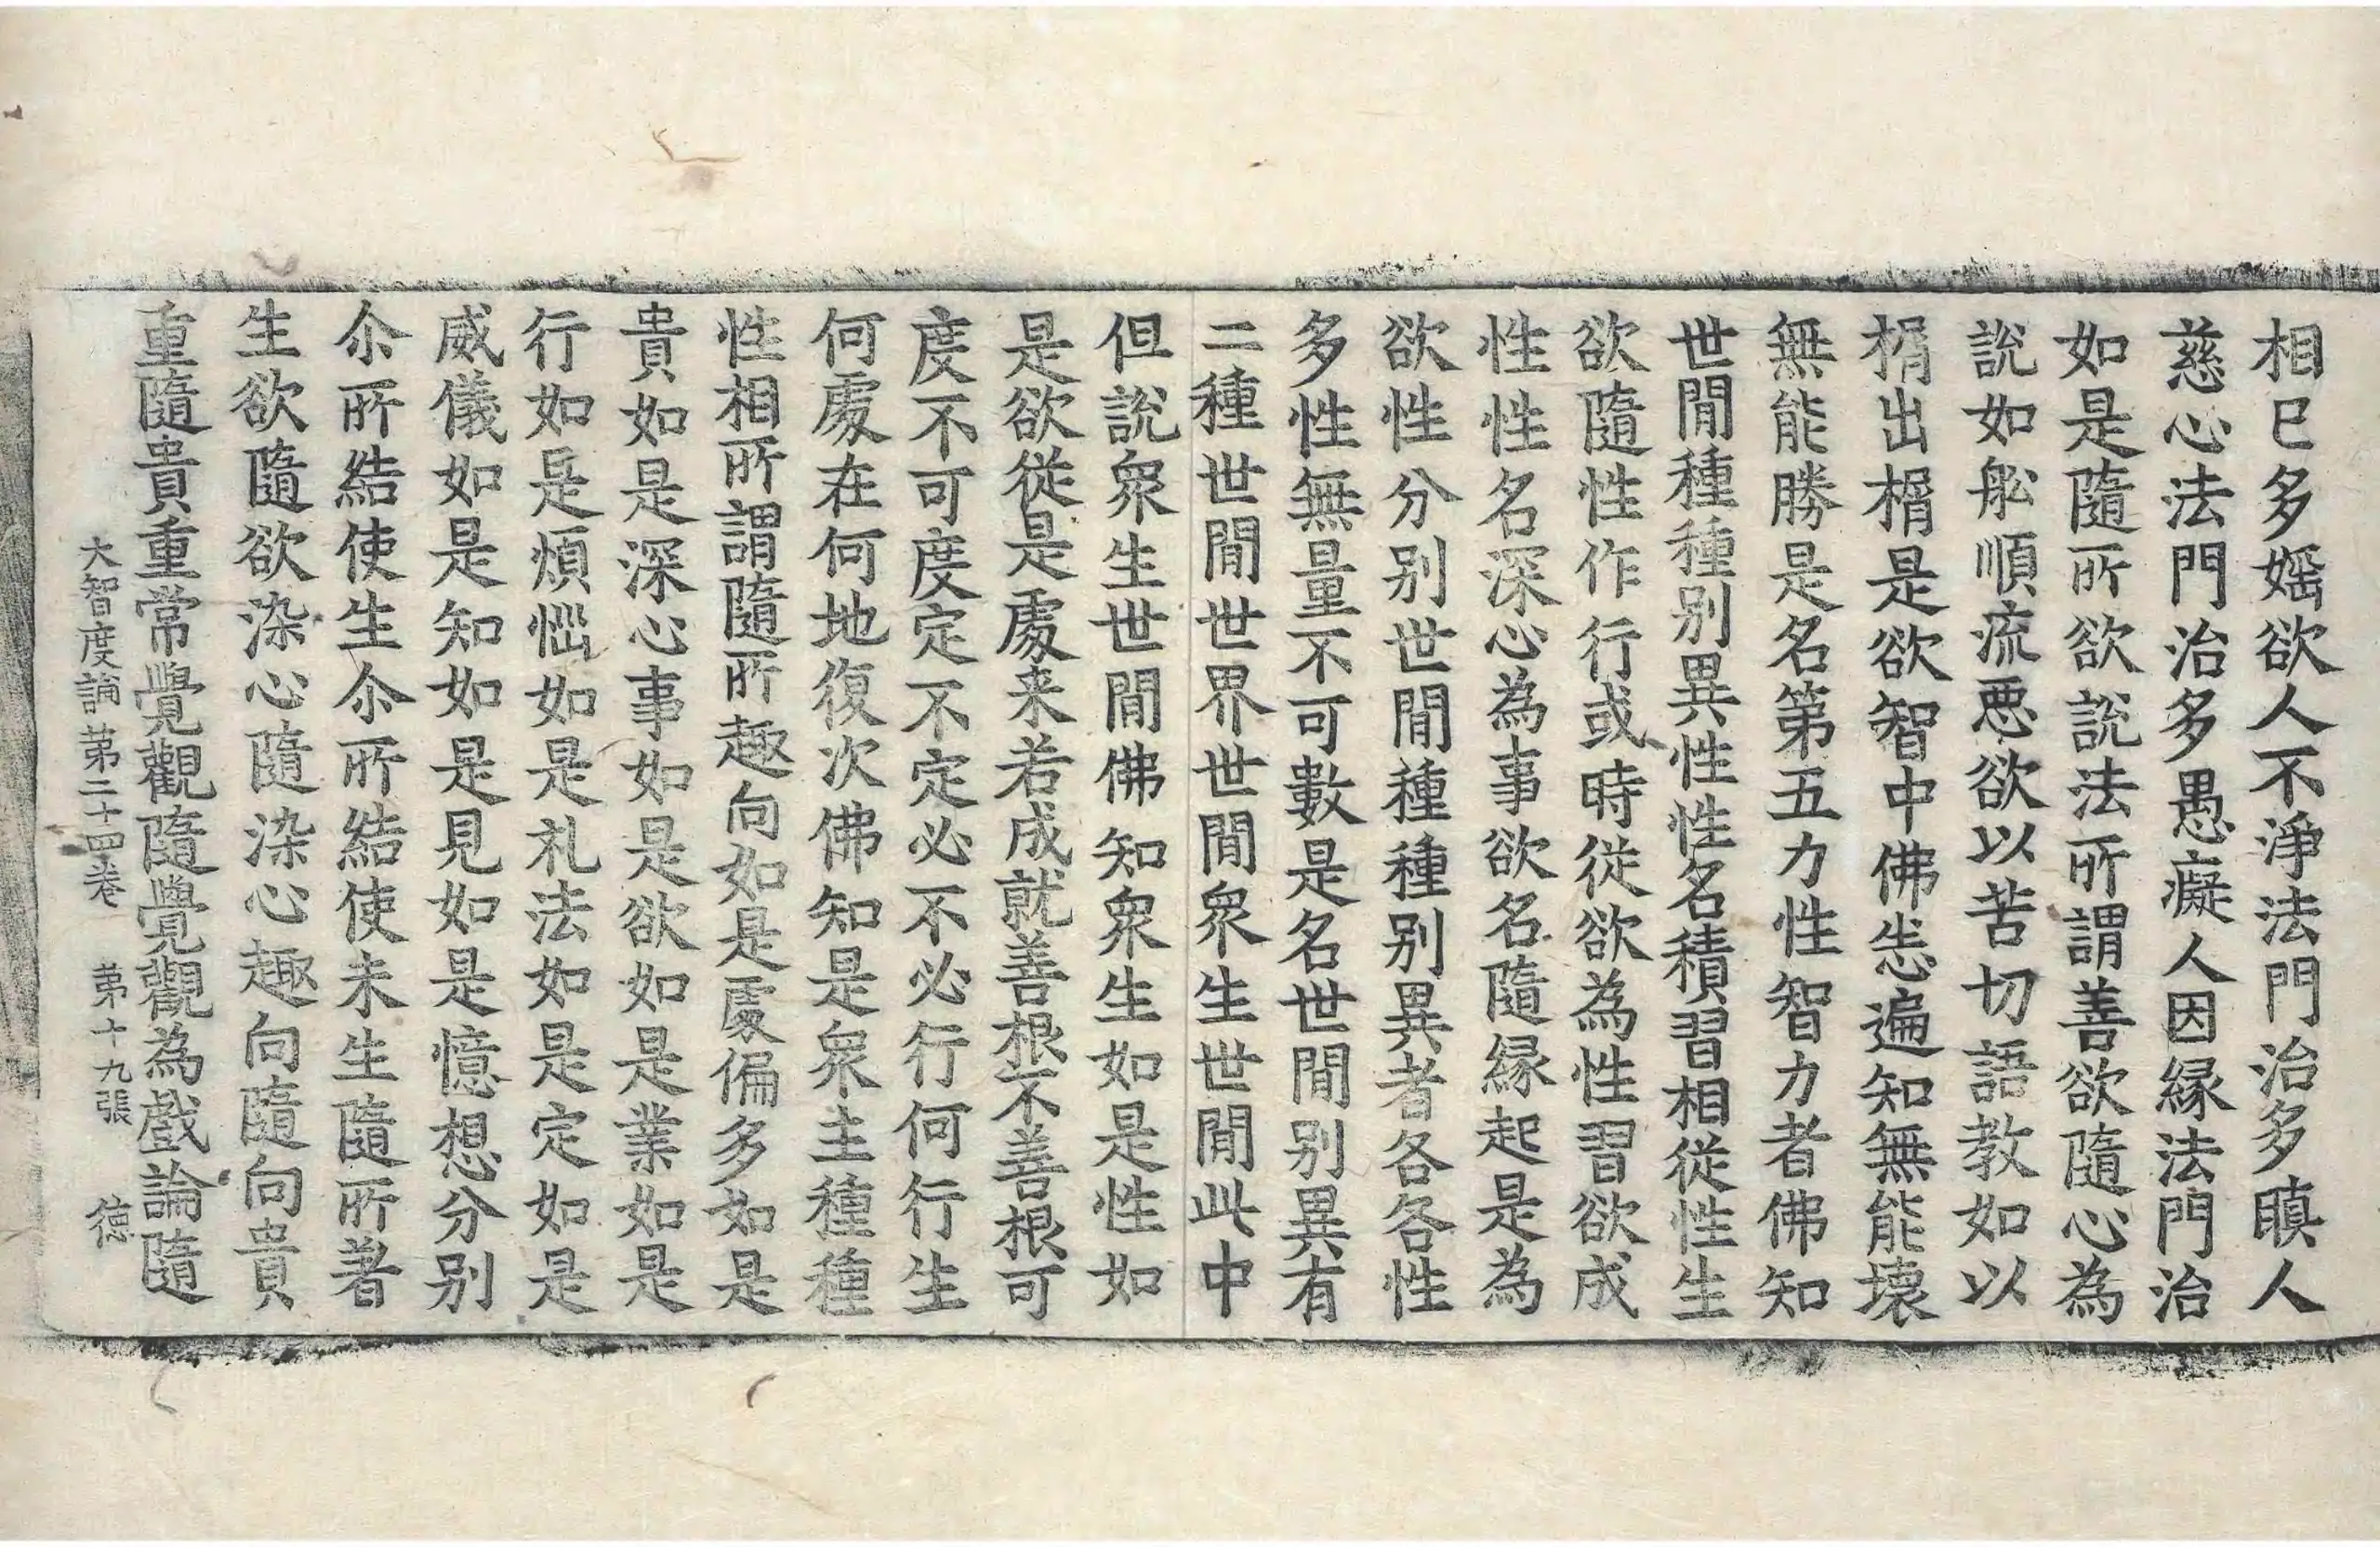 相已多婬欲人不淨法門治多瞋人
慈心法門治多愚癡人因緣法門治
如是隨所欲說法所謂善欲隨心為
說如舩順流惡欲以苦切語教如以
榍出榍是欲智中佛悉遍知無能壞
無能勝是名第五力性智力者佛知
世閒種種別異性性名積習相從性生
欲隨性作行或時從欲為性習欲成
性性名深心為事欲名隨緣起是為
欲性分別世閒種種別異者各各性
多性無量不可數是名世閒別異有
二種世閒世界世閒眾生世閒此中
但說眾生世閒佛知眾生如是性如
是欲從是處来若成就善根不善根可
度不可度定不定必不必行何行生
何處在何地復次佛知是眾生種種
性相所謂隨所趣向如是處偏多如是
貴如是深心事如是欲如是業如是
行如是煩惱如是礼法如是定如是
威儀如是知如是見如是憶想分別
尒所結使生尒所結使未生隨所著
生欲隨欲染心隨染心趣向隨向貴
重隨貴重常覺觀隨覺觀為戲論隨
大智度論第二十四卷 第十九張 德